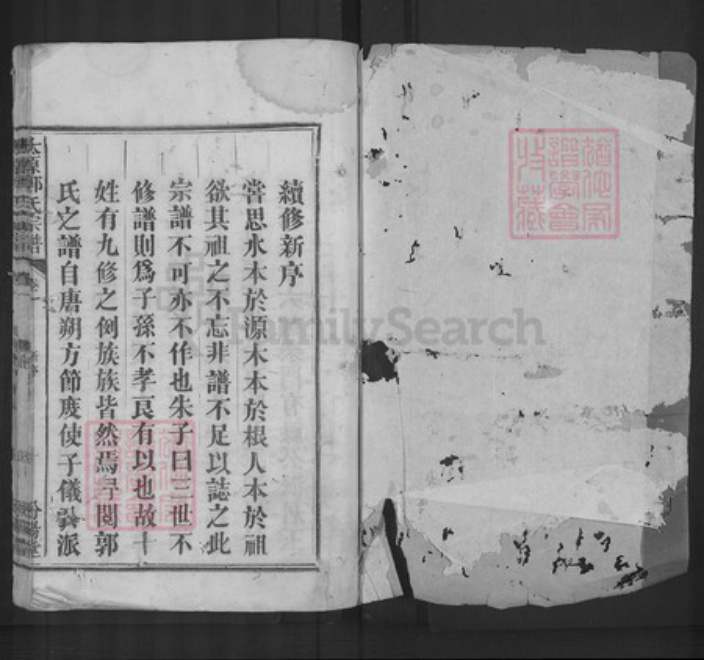 續修新序
甞思水本於源木本於根人本於祖
欲其祖之不忘非譜不足以誌之此
宗譜不可亦不作也朱子曰三世不
修譜則爲子孫不孝良有以也故十
姓有九修之倒族族皆然焉尋閱郭
氏之譜自唐朔方節度使子儀公派
太原郭氏宗譜
卷一
汾陽堂
FamilySearch